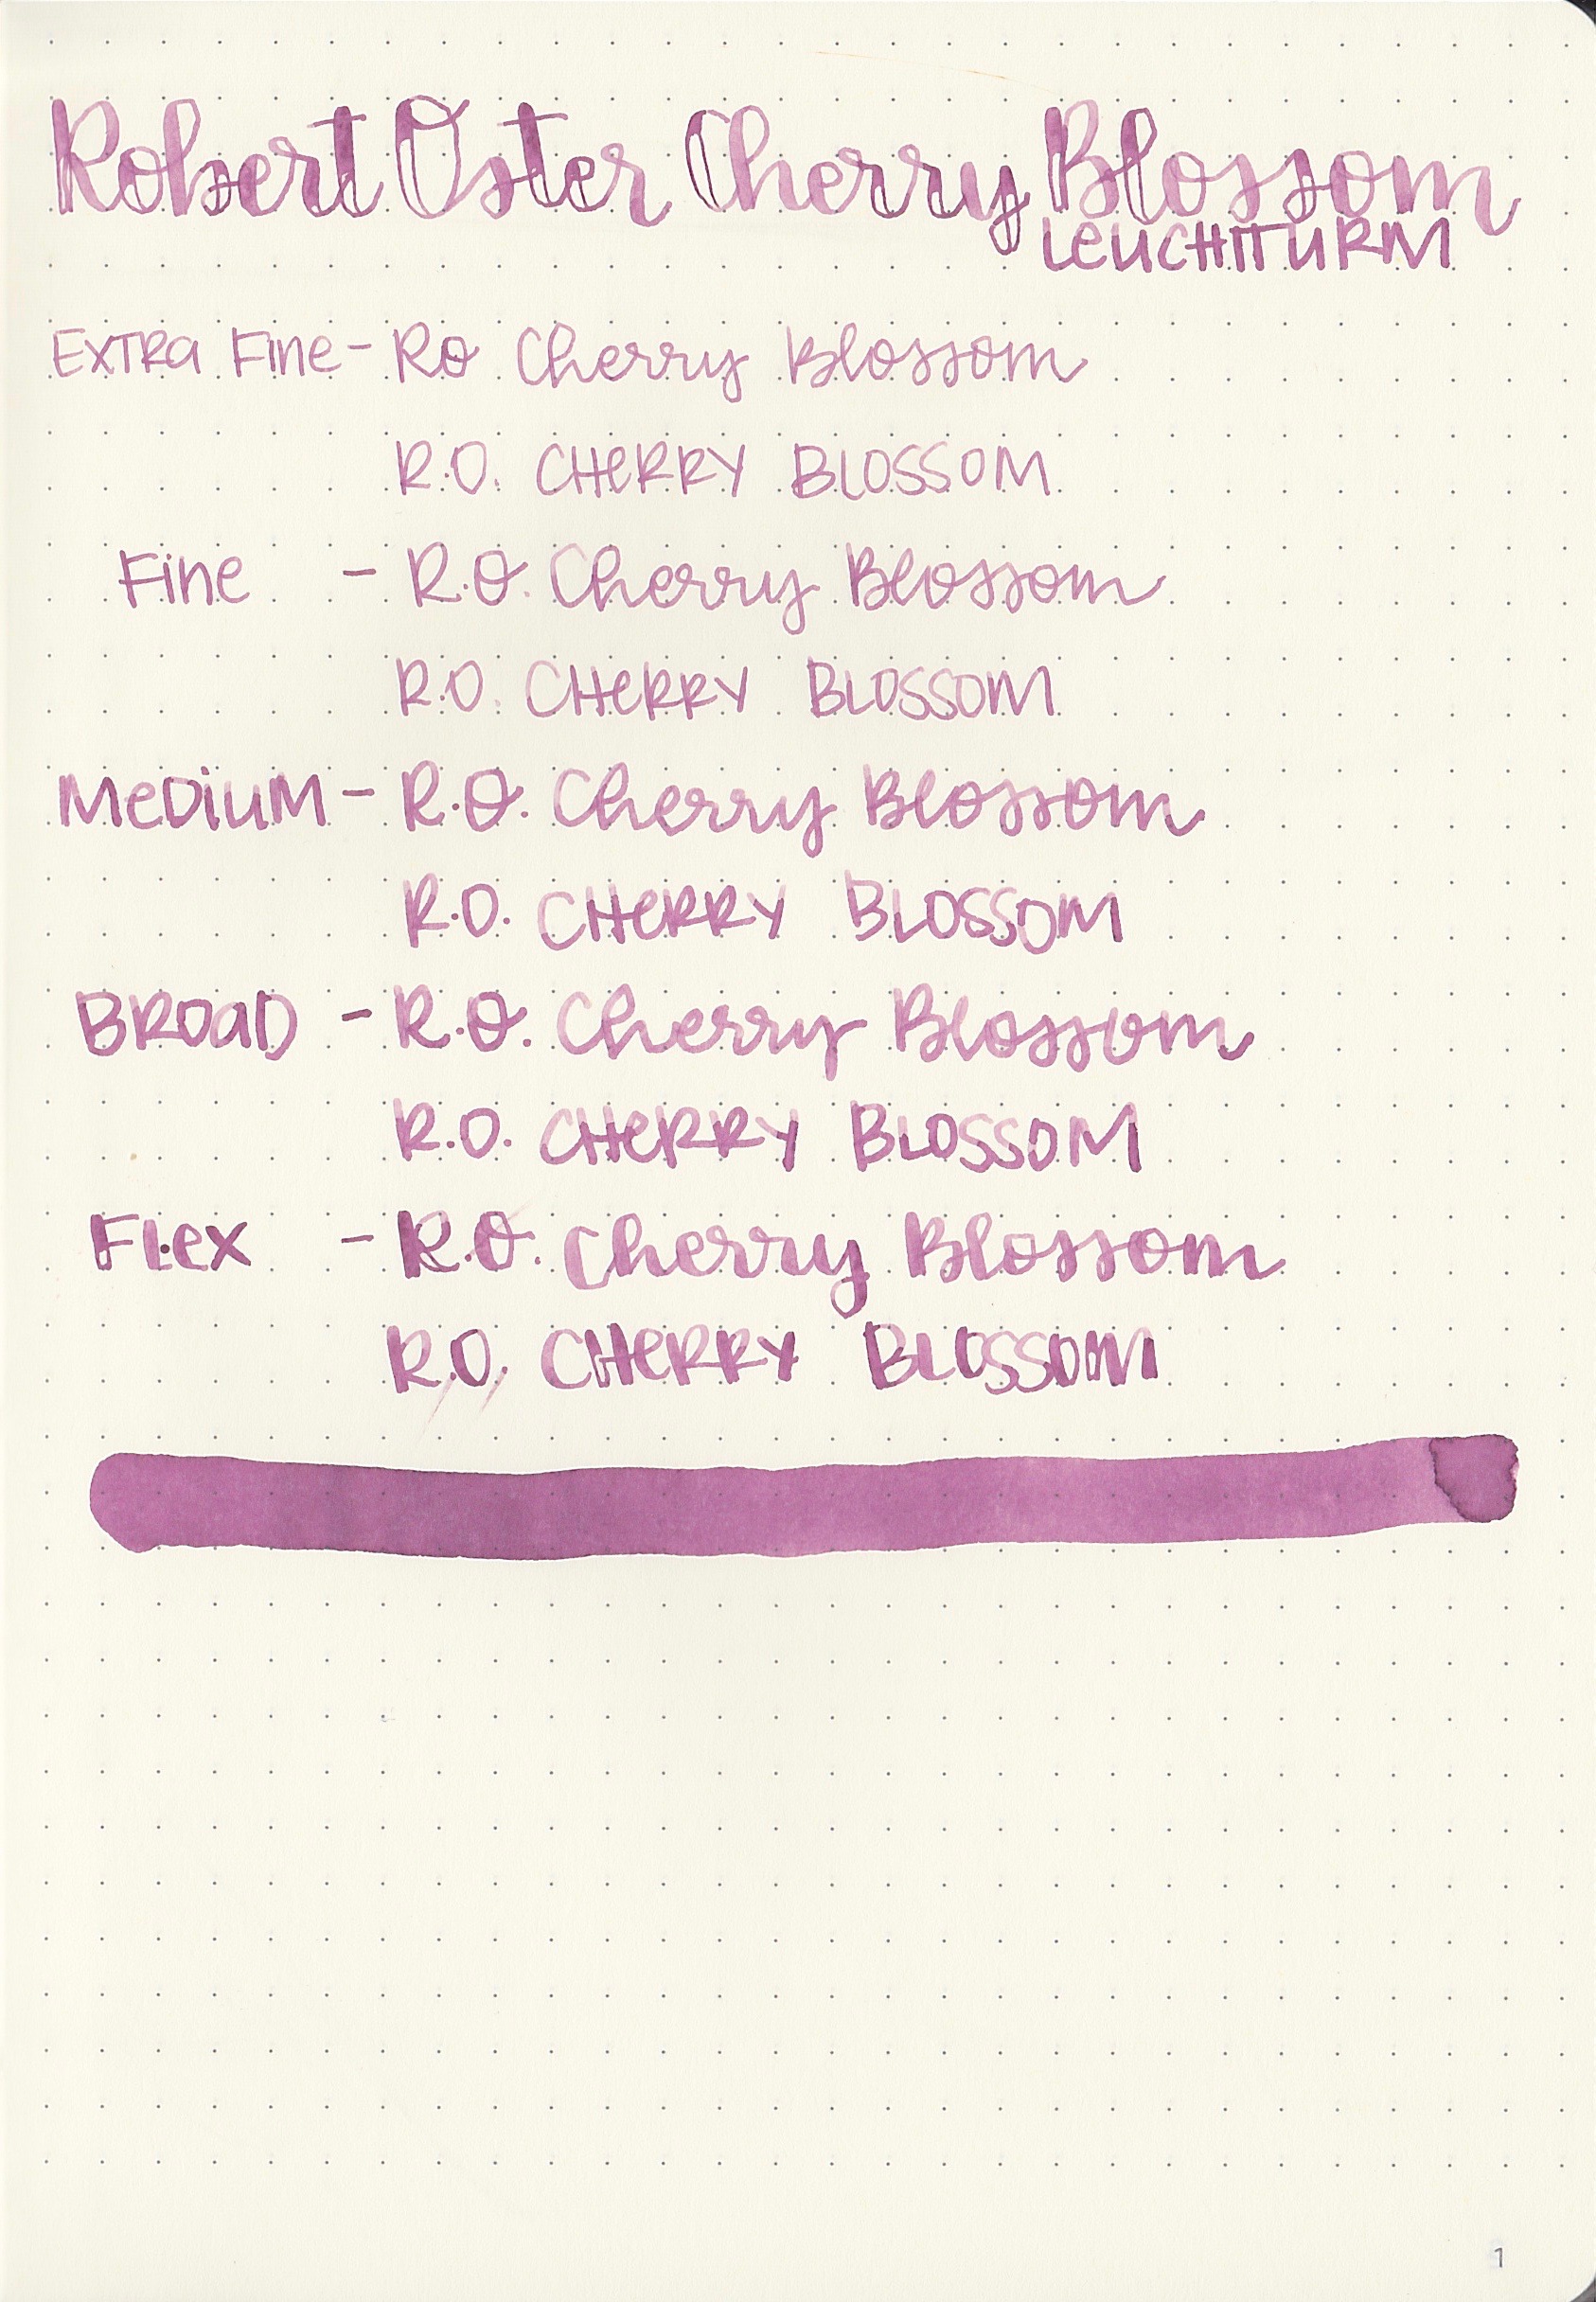 Robert Oster Cherry Blossom
LEUCHTTURM
EXTRA FINE - RO Cherry Blossom
R.O. CHERRY BLOSSOM
Fine - R.O. Cherry Blossom
R.O. CHERRY BLOSSOM
MEDIUM - R.O. Cherry Blossom
R.O. CHERRY BLOSSOM
BROAD - R.O. Cherry Blossom
R.O. CHERRY BLOSSOM
FLEX - R.O. Cherry Blossom
R.O. CHERRY BLOSSOM
1